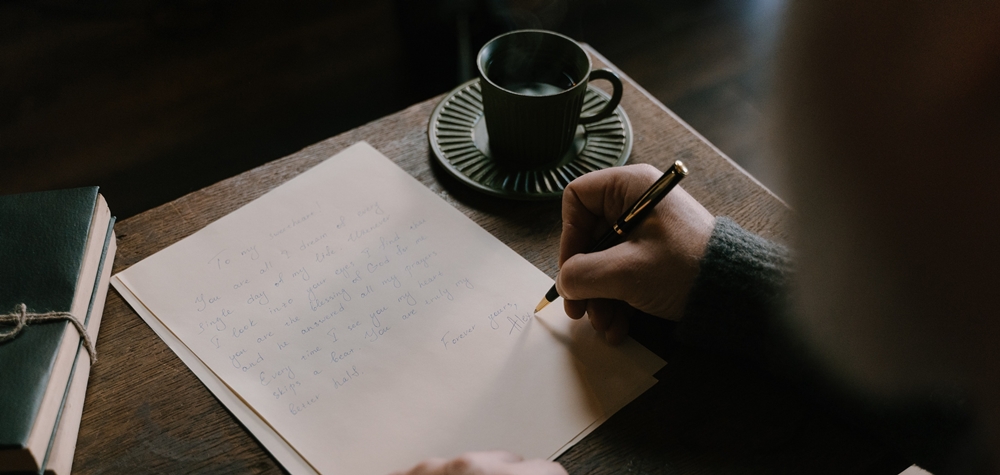 To my sweetheart!
You are all I dream of every
single day of my life. Whenever
I look into your eyes I find
you are the blessing
and he answered all my prayers
Every time I see you my heart
skips a beat. You are truly my
better half.
Forever yours,
Alex